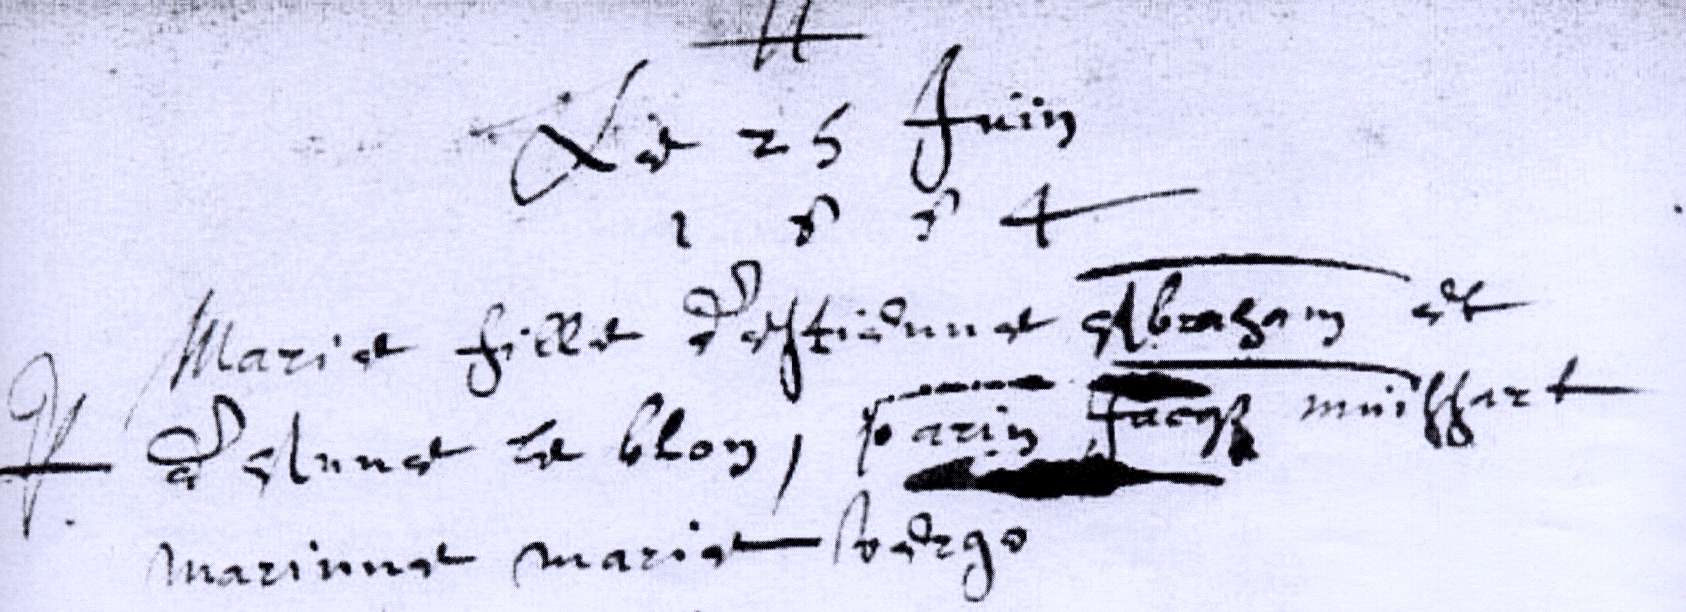 Le 25 Juin
1 5 5 4
Marie fille d'estienne Abraham et
d'Anne le blon, parin Jacq muissart
marinne marie